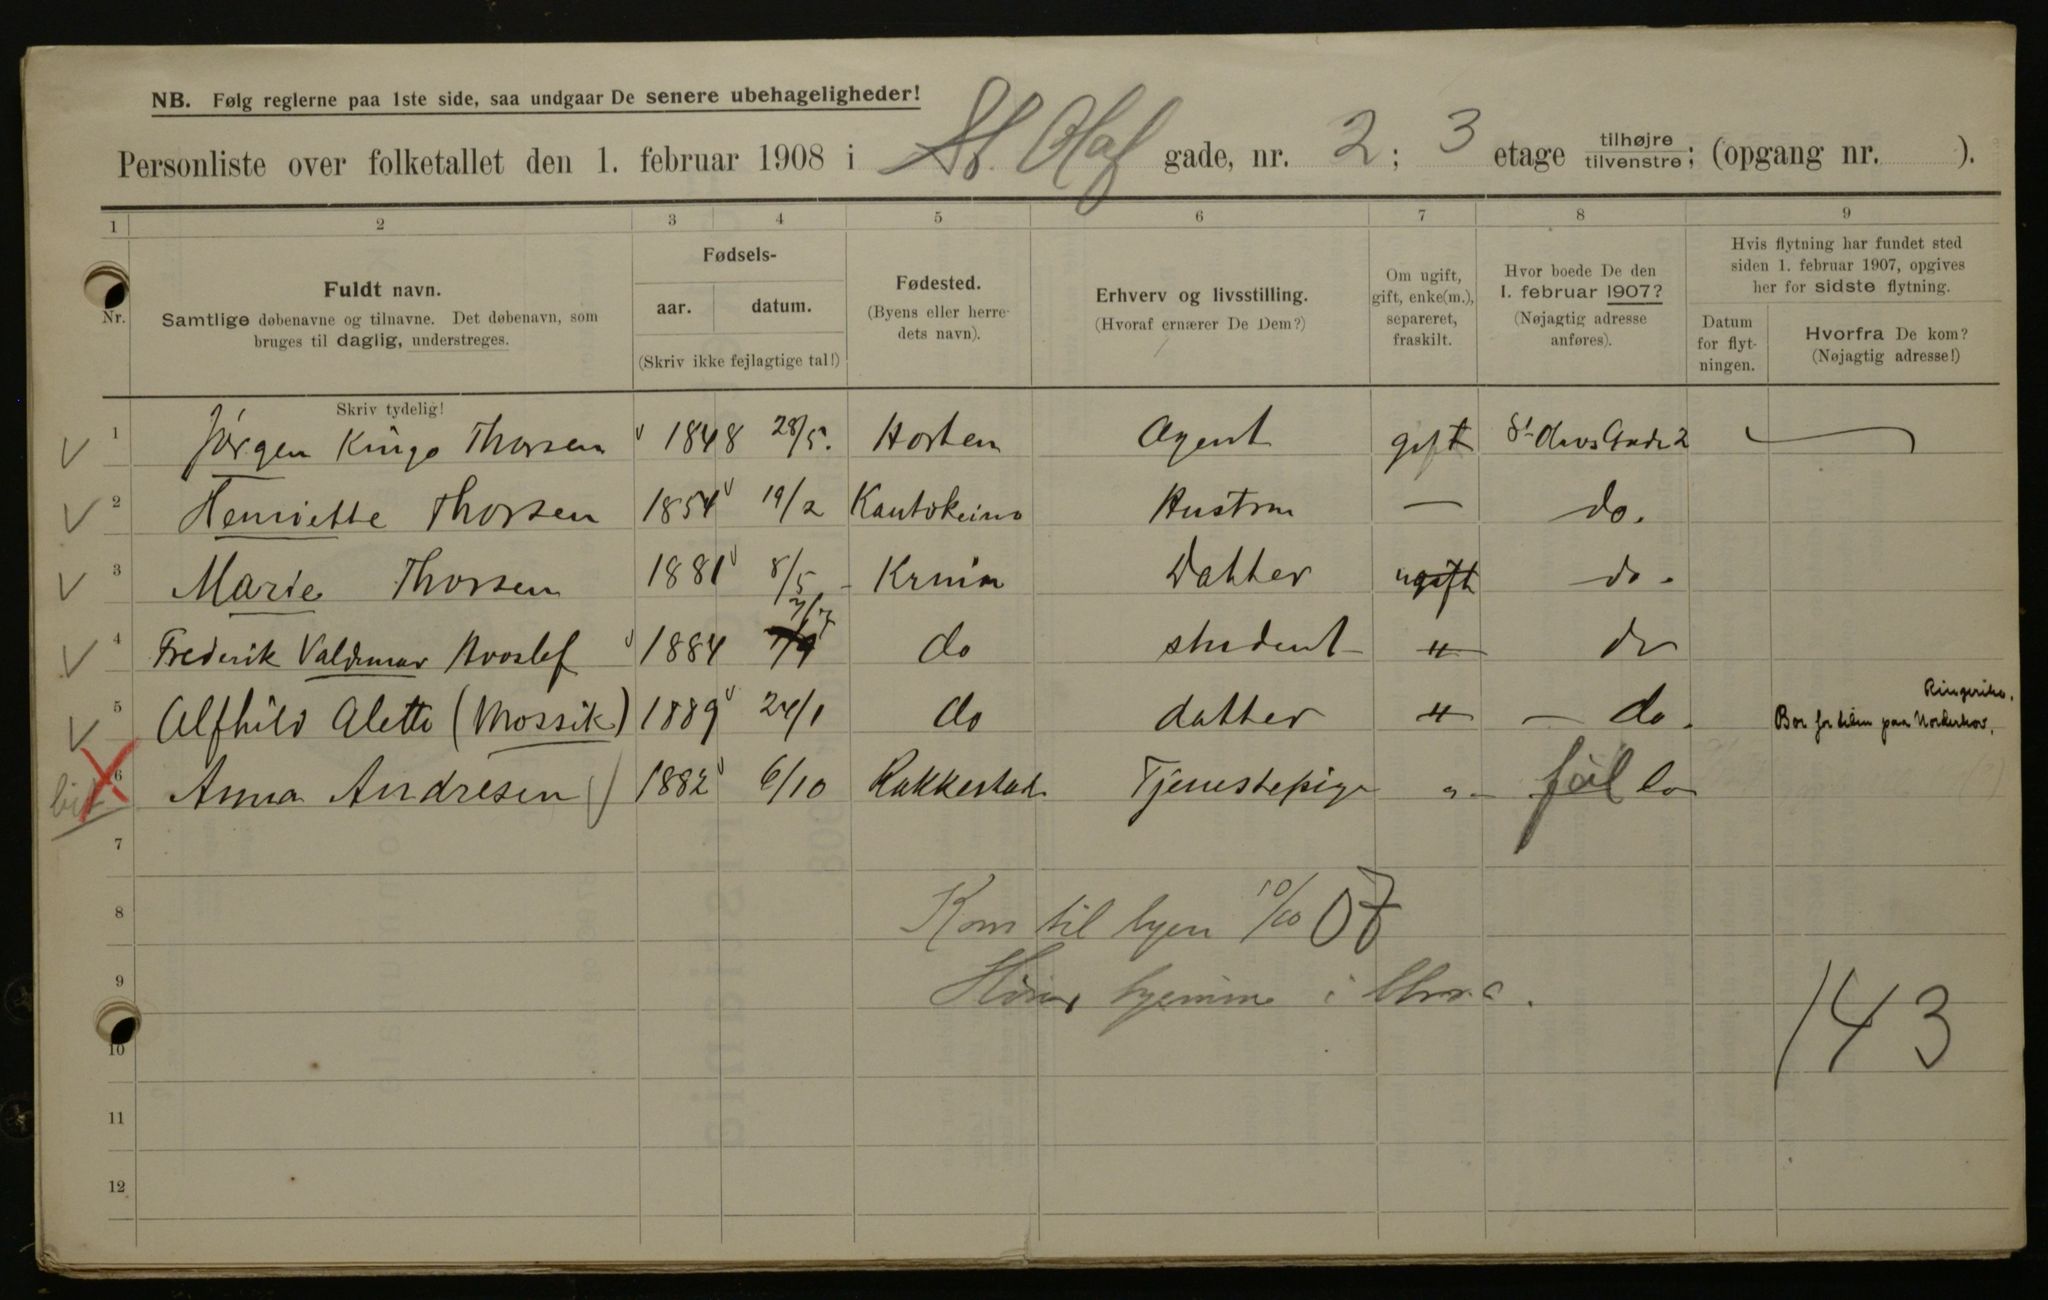 NB. Følg reglerne paa 1ste side, saa undgaar De senere ubehageligheder!
Personliste over folketallet den 1. februar 1908 i St. Olaf gade, nr. 2; 3 etage tilhøjre tilvenstre; (opgang nr. ).
1 2 3 4 5 6 7 8 9
Nr.
Fuldt navn.
Samtlige døbenavne og tilnavne. Det døbenavn, som
bruges til daglig, understreges.
Fødsels-
aar. datum.
(Skriv ikke fejlagtige tal!)
Fødested.
(Byens eller herre-
dets navn).
Erhverv og livsstilling.
(Hvoraf ernærer De Dem?)
Om ugift,
gift, enke(m.),
separeret,
fraskilt.
Hvor boede De den
1. februar 1907?
(Nøjagtig adresse
anføres).
Hvis flytning har fundet sted
siden 1. februar 1907, opgives
her for sidste flytning.
Datum
for flyt-
ningen.
Hvorfra De kom?
(Nøjagtig adresse!)
Skriv tydelig!
1 Jørgen Kingo Thorsen 1848 28/5. Horten Agent gift St Olavs Gade 2
2 Henriette Thorsen 1854 19/2 Kautokeino Hustru — do.
3 Marie Thorsen 1881 8/5 - Krnia Datter ugift do.
4 Frederik Valdemar 1884 7/7 do student " do
5 Alfhild Alette (Mossik) 1889 24/1 do datter " — do.
Ringerike.
Bor for tiden paa Norderhov.
6 Anna Andresen 1882 6/10 Rakkestad Tjenestepige " - føl do
7
8 Kom til byen 10/10 07
9 hjemme i Chra.
143
10
11
12